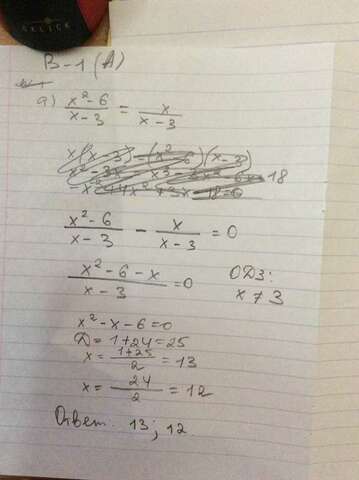 GELICK
В-1 (А)
а) x²-6/x-3 = x/x-3
x²-6/x-3 - x/x-3 = 0
x²-6-x/x-3 = 0 ОДЗ:
x ≠ 3
x²-x-6=0
Д = 1+24=25
x = 1+25/2 = 13
x = 24/2 = 12
Ответ: 13; 12